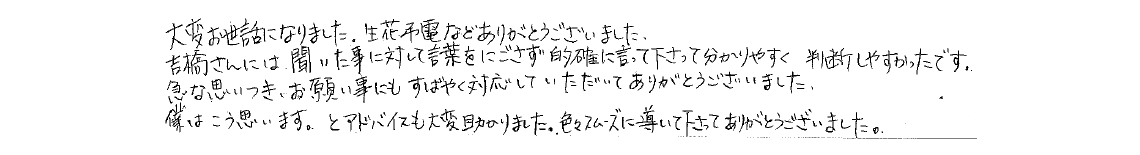 大変お世話になりました。生花弔電などありがとうございました。
吉橋さんには、聞いた事に対して言葉をにごさず的確に言って下さって分かりやすく 判断しやすかったです。
急な思いつき、お願い事にもすばやく対応していただいてありがとうございました。
僕はこう思います。とアドバイスも大変助かりました。色々スムーズに導いて下さってありがとうございました。